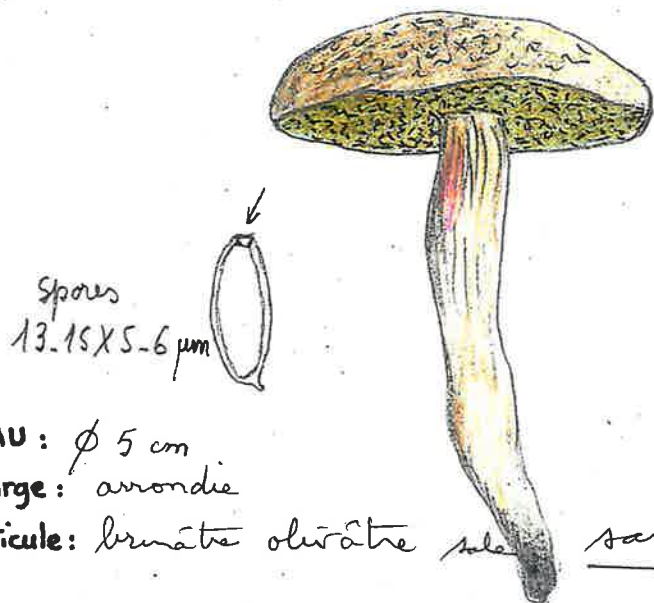 Spores
13-15X5-6 µm
AU : ϕ 5 cm
rge : arrondie
icule : brunâtre olivâtre sale sa